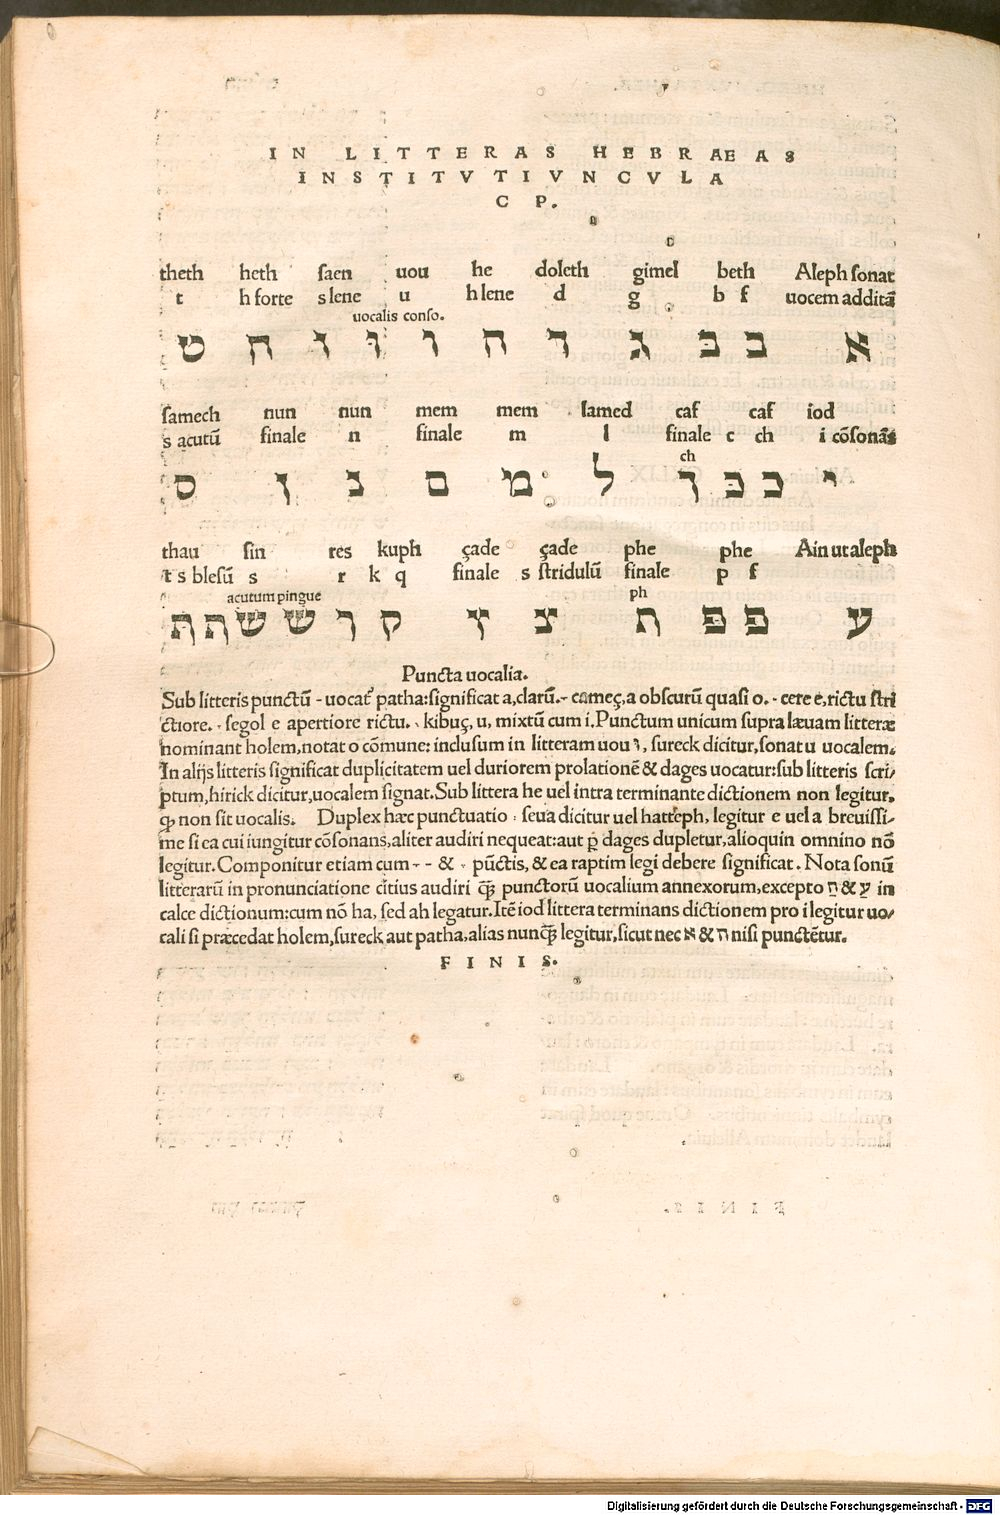 IN LITTERAS HEBRAEAS
INSTITVTIVNCVLA
CP.
theth heth ſaen uou he doleth gimel beth Aleph ſonat
t h forte s lene u h lene d g b f uocem additā
uocalis conſo.
ט ח ז וּ ו ה ד ג בּ ב א
ſamech nun nun mem mem lamed caf caf iod
s acutū finale n finale m l finale c ch i cōſonās
ch
ס ן נ ם מ ל ך כּ כ י
thau ſin res kuph çade çade phe phe Ain ut aleph
t s bleſū s r k q finale s ſtridulū finale p f
acutum pingue ph
תּ ת שׂ שׁ ר ק ץ צ ף פּ פ ע
Puncta uocalia.
Sub litteris punctū - uocat᷑ patha:ſignificat a,clarū.- cameç,a obſcurū quaſi o. - cere e,rictu ſtri
ctiore. - ſegol e apertiore rictu. - kibuç, u, mixtū cum i.Punctum unicum ſupra læuam litteræ
nominant holem,notat o cōmune: incluſum in litteram uou וּ, ſureck dicitur,ſonat u uocalem.
In alijs litteris ſignificat duplicitatem uel duriorem prolationē & dages uocatur:ſub litteris ſcri/
ptum,hirick dicitur,uocalem ſignat.Sub littera he uel intra terminante dictionem non legitur,
ꝙ non ſit uocalis. Duplex hæc punctuatio : ſeua dicitur uel hatteph, legitur e uel a breuiſſi-
me ſi ea cui iungitur cōſonans,aliter audiri nequeat:aut ꝑ dages dupletur,alioquin omnino nō
legitur.Componitur etiam cum - - & - pūctis, & ea raptim legi debere ſignificat. Nota ſonū
litterarū in pronunciatione citius audiri ꝙ̄ punctorū uocalium annexorum,excepto חַ & עַ in
calce dictionum:cum nō ha, ſed ah legatur.Itē iod littera terminans dictionem pro i legitur uo/
cali ſi præcedat holem,ſureck aut patha,alias nunꝙ̄ legitur,ſicut nec א & ה niſi punctētur.
FINIS.
Digitalisierung gefördert durch die Deutsche Forschungsgemeinschaft - DFG